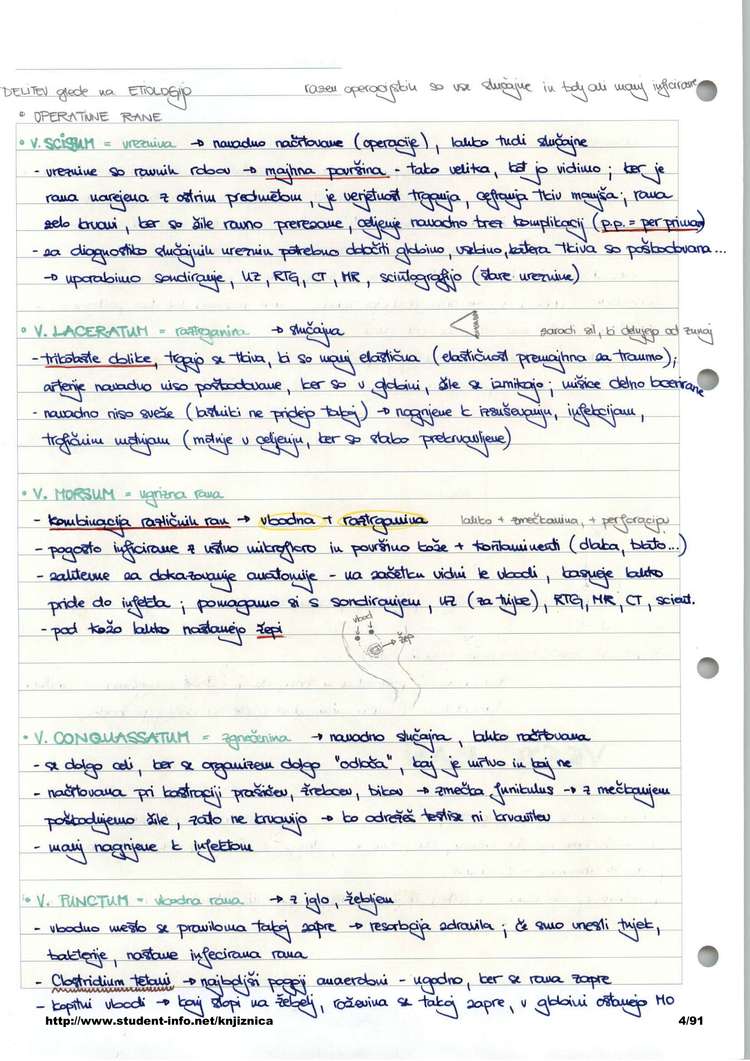 DELITEV glede na ETIOLOGIJO
razen operacijskih so vse slučajne in bolj ali manj inficirane
• OPERATIVNE RANE
• V. SCISUM = vreznina → navadno načrtovane (operacije), lahko tudi slučajne
- vreznine so ravnih robov → majhna površina - tako velika, kot jo vidimo; ker je
rana narejena z ostrim predmetom, je verjetnost trganja, cefranja tkiv manjša; rana
zelo krvavi, ker so žile ravno prerezane, celjenje navadno brez komplikacij (p.p. = per primam)
- za diagnostiko slučajnih vreznin potrebno določiti globino, vsebino, katera tkiva so poškodovana...
→ uporabimo sondiranje, UZ, RTG, CT, MR, scintigrafijo (stare vreznine)
• V. LACERATUM = raztrganina → slučajna
zaradi sil, ki delujejo od zunaj
- trikotaste oblike, trgajo se tkiva, ki so manj elastična (elastičnost premajhna za travmo);
arterije navadno niso poškodovane, ker so v globini, žile se izmikajo; mišice delno lacerirane
- navadno niso sveže (lastniki ne pridejo takoj) → nagnjene k izsuševanju, infekcijam,
trofičnim motnjam (motnje v celjenju, ker so slabo prekrvavljene)
• V. MORSUM = ugrizna rana
- kombinacija različnih ran → vbodna + raztrganina lahko + zmečkanina, + perforacija
- pogosto inficirane z ustno mikrofloro in površino kože + kontaminenti (dlaka, blato...)
- zahtevne za dokazovanje anatomije - na začetku vidni le vbodi, kasneje lahko
pride do infekta; pomagamo si s sondiranjem, UZ (za tujke), RTG, MR, CT, scint.
- pod kožo lahko nastanejo žepi
vbodi
žep
• V. CONQUASSATUM = zgnečenina → navadno slučajna, lahko načrtovana
- se dolgo celi, ker se organizem dolgo "odloča", kaj je mrtvo in kaj ne
- načrtovana pri kastraciji prašičev, žrebcev, bikov → zmečka funikulus → z mečkanjem
poškodujemo žile, zato ne krvavijo → ko odrežeš testise ni krvavitev
- manj nagnjene k infektom
• V. PUNCTUM = vbodna rana → z iglo, žebljem
- vbodno mesto se praviloma takoj zapre → resorbcija zdravila; če smo vnesli tujek,
bakterije, nastane inficirana rana
- Clostridium tetani → najboljši pogoji anaerobni - ugodno, ker se rana zapre
- kopitni vbodi → konj stopi na žebelj, roževina se takoj zapre, v globini ostanejo MO
http://www.student-info.net/knjiznica
4/91